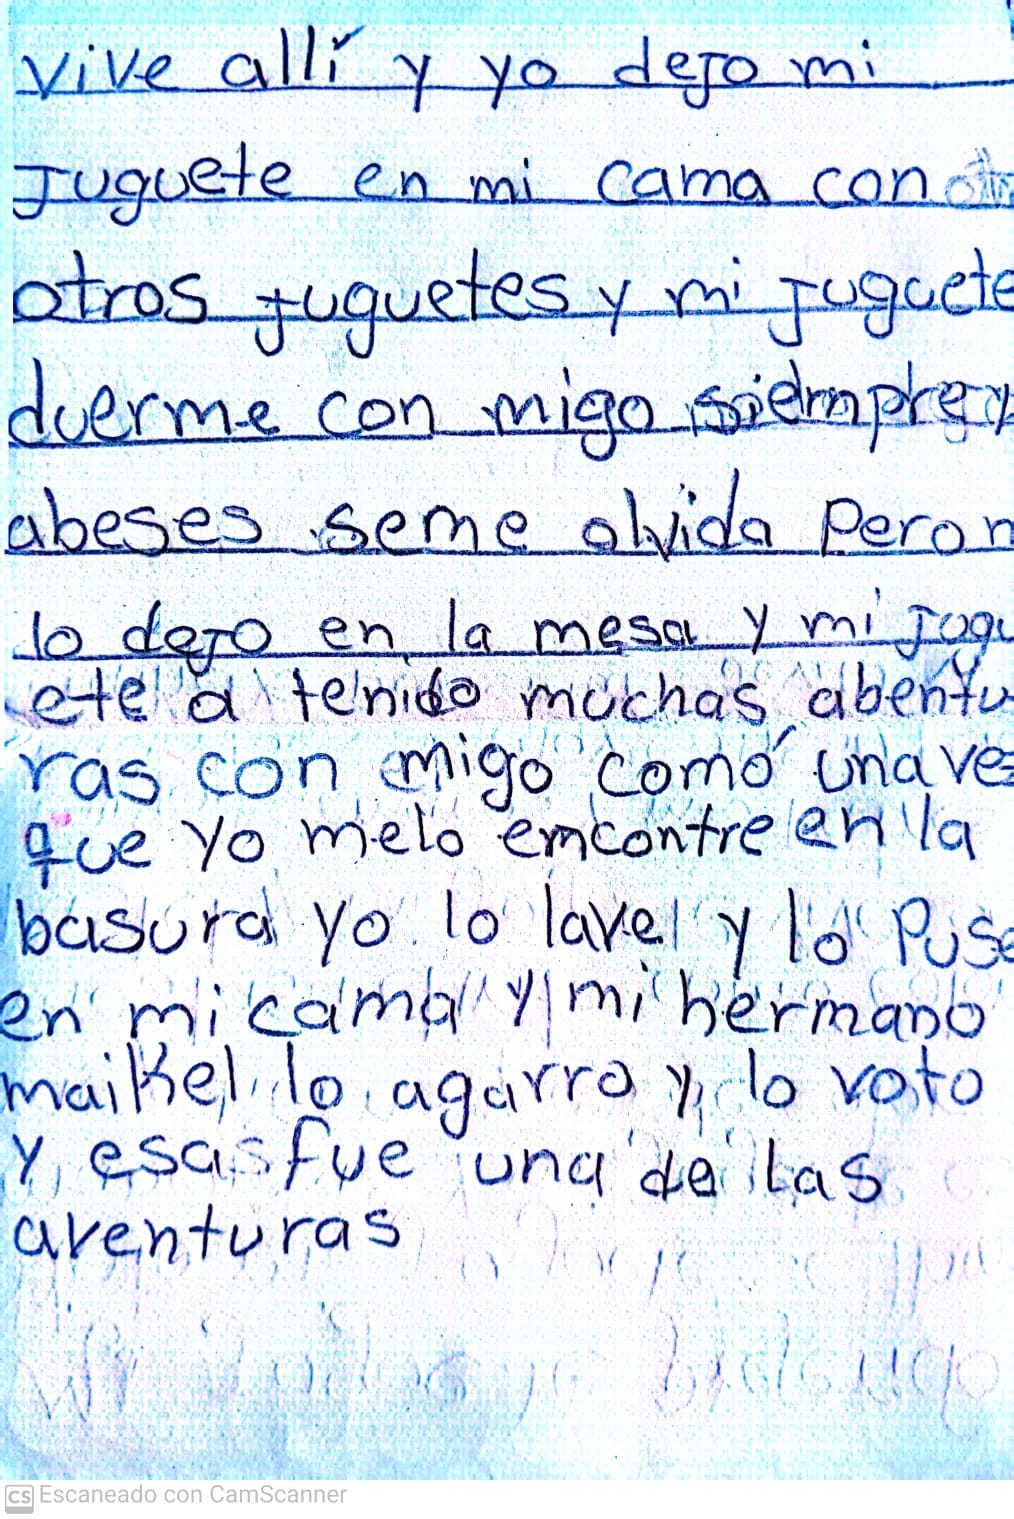 vive allí y yo dejo mi
juguete en mi cama con
otros juguetes y mi juguete
duerme con migo siempre y
abeses seme olvida pero n
lo dejo en la mesa y mi jugu
ete a tenido muchas abentu
ras con migo como una ves
que yo melo emcontre en la
basura yo lo lave y lo puse
en mi cama y mi hermano
maikel lo agarro y lo voto
y esas fue una de las
aventuras
CS Escaneado con CamScanner